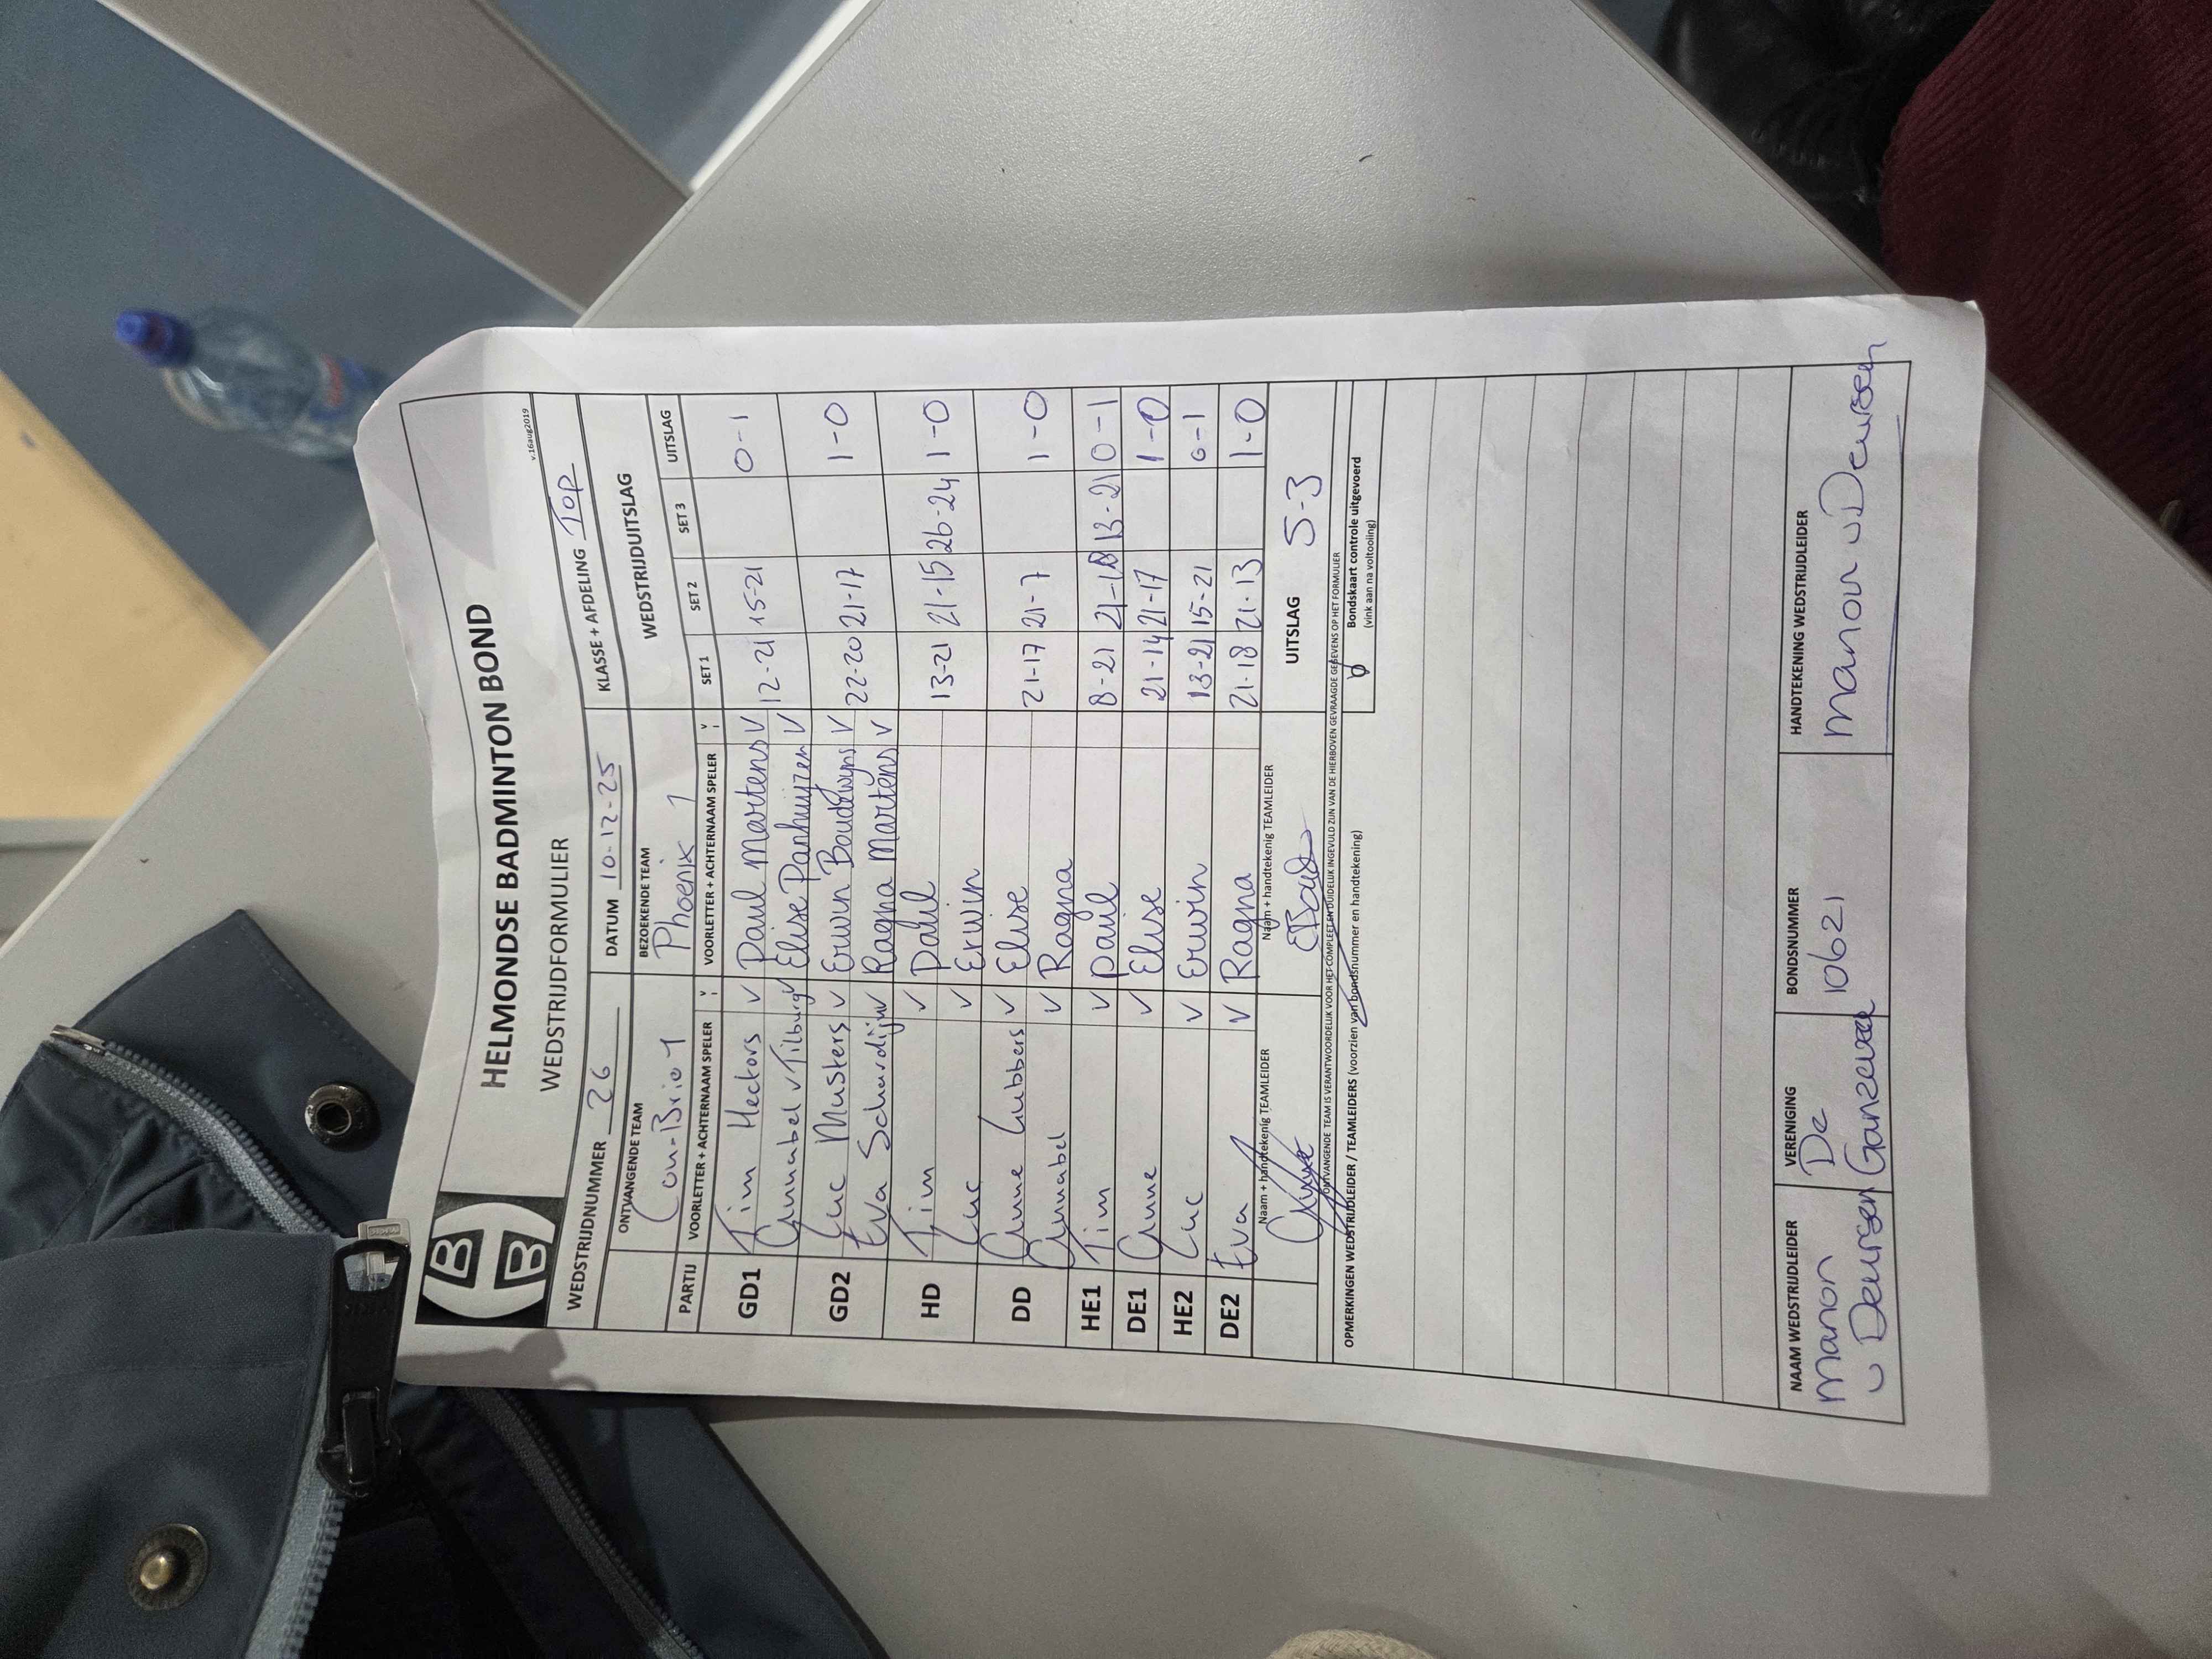 HELMONDSE BADMINTON BOND
WEDSTRIJDFORMULIER
v.16aug2019
WEDSTRIJDNUMMER 26 DATUM 10-12-25 KLASSE + AFDELING Top
ONTVANGENDE TEAM BEZOEKENDE TEAM WEDSTRIJDUITSLAG
Con-Brio 1 Phoenix 1
PARTIJ VOORLETTER + ACHTERNAAM SPELER V VOORLETTER + ACHTERNAAM SPELER V SET 1 SET 2 SET 3 UITSLAG
GD1 Tim Hectors V Paul Martens V 12-21 15-21 0-1
Annabel v Tilburg V Elise Panhuijzen V
GD2 Luc Musters V Erwin Boudewijns V 22-20 21-17 1-0
Eva Schuurdijn V Ragna Martens V
HD Tim V Paul 13-21 21-15 26-24 1-0
Luc V Erwin
DD Anne Lubbers V Elise 21-17 21-7 1-0
Annabel V Ragna
HE1 Tim V Paul 8-21 21-18 13-21 0-1
DE1 Anne V Elise 21-14 21-17 1-0
HE2 Luc V Erwin 13-21 15-21 0-1
DE2 Eva V Ragna 21-18 21-13 1-0
Naam + handtekenig TEAMLEIDER Naam + handtekenig TEAMLEIDER UITSLAG 5-3
ONTVANGENDE TEAM IS VERANTWOORDELIJK VOOR HET COMPLEET EN DUIDELIJK INGEVULD ZIJN VAN DE HIERBOVEN GEVRAAGDE GEGEVENS OP HET FORMULIER
OPMERKINGEN WEDSTRIJDLEIDER / TEAMLEIDERS (voorzien van bondsnummer en handtekening)
Bondskaart controle uitgevoerd
(vink aan na voltooling)
NAAM WEDSTRIJDLEIDER VERENIGING BONDSNUMMER HANDTEKENING WEDSTRIJDLEIDER
manon De 10621 manon v Deursen
v Deursen Ganzeveer